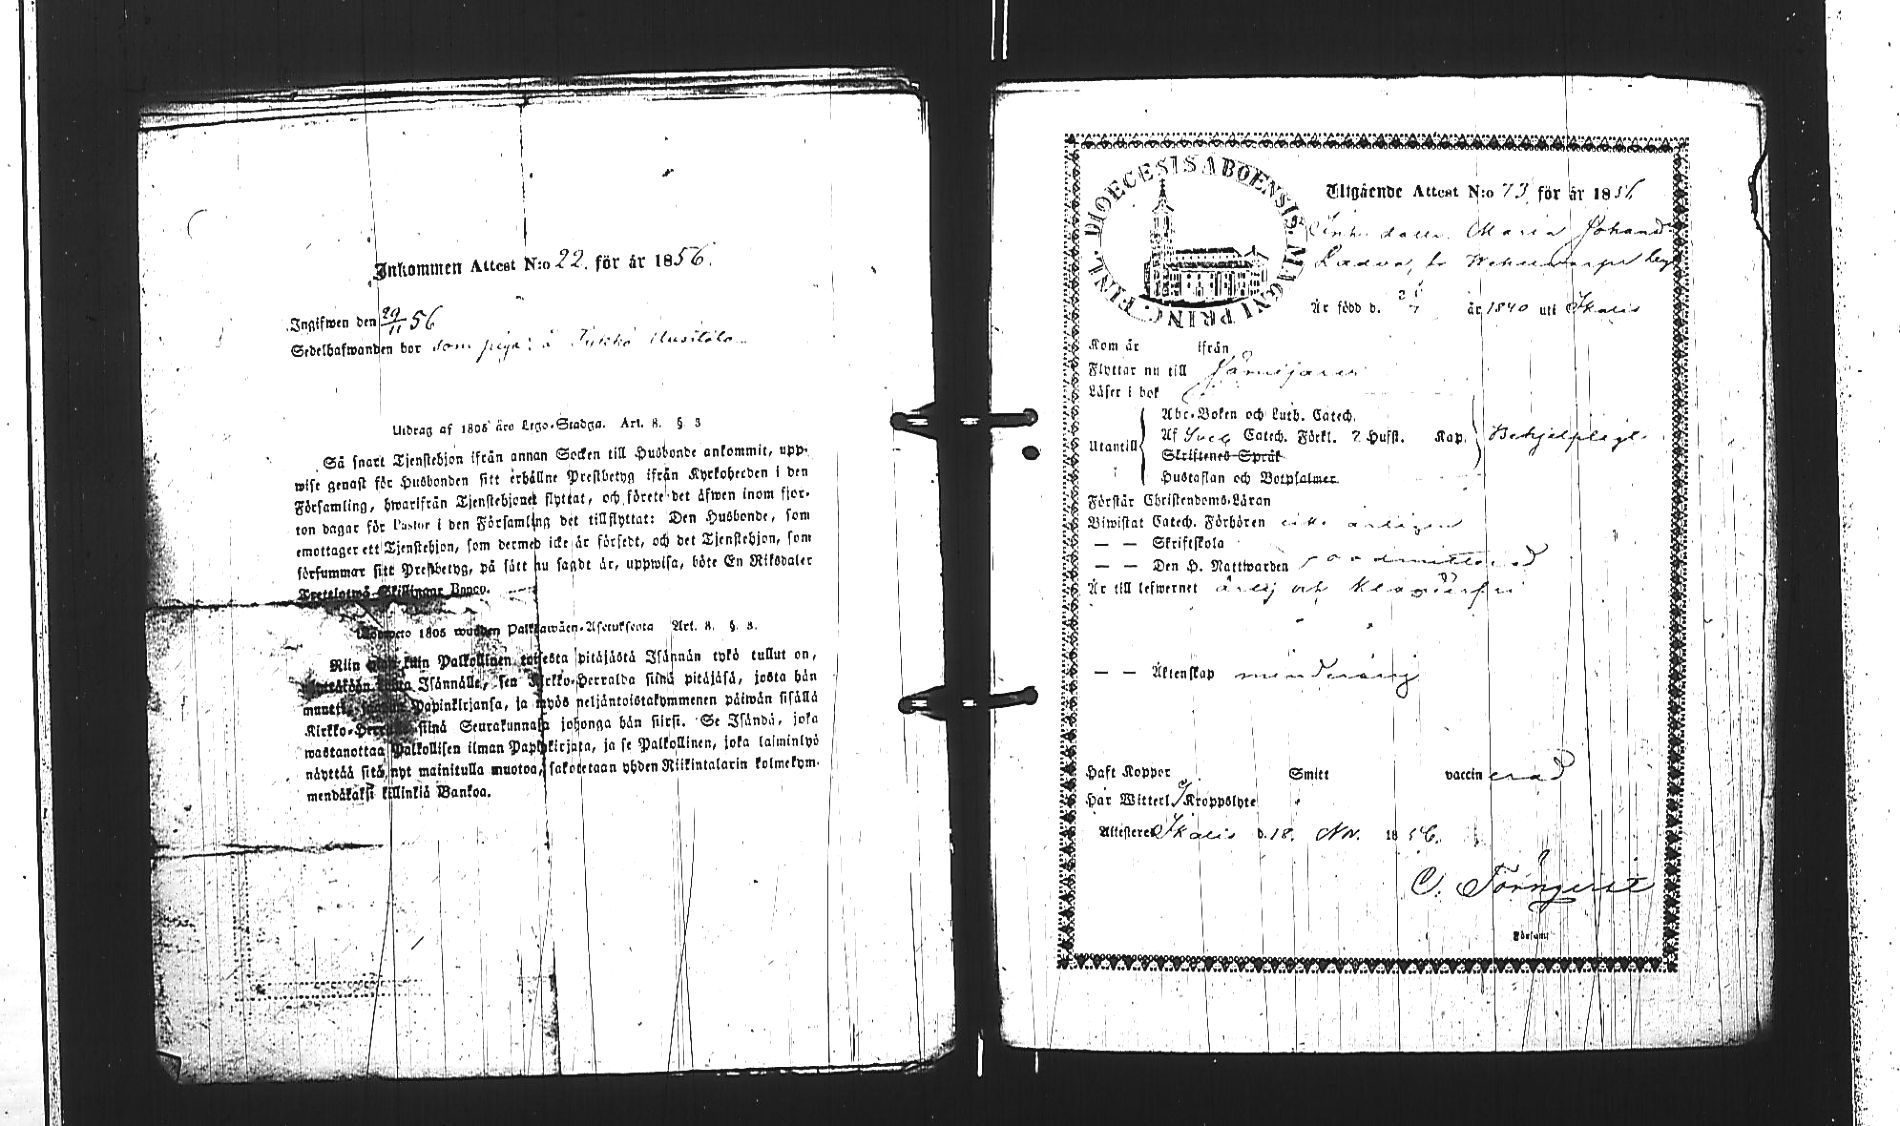 Inkommen Attest N:o 22. för år 1856.
Ingifwen den 29/11 56
Sedelhafwanden bor som piga: å Jukko Uusitalo
Utdrag af 1805 års Lego-Stadga. Art. 8. § 3
Så snart Tjenstehjon ifrån annan Socken till Husbonde ankommit, upp-
wise genast för Husbonden sitt erhållne Prestbetyg ifrån Kyrkoherden i den
Församling, hwarifrån Tjenstehjonet flyttat, och förete det äfwen inom fjor-
ton dagar för Pastor i den Församling det tillflyttat: Den Husbonde, som
emottager ett Tjenstehjon, som dermed icke är försedt, och det Tjenstehjon, som
försummar sitt Prestbetyg, på sätt nu sagdt är, uppwisa, böte En Riksdaler
Trettiotwå Skillingar Banco.
1805 wuoden Palkkawäen-Asetuksesta Art. 8. §. 3.
Niin kuin Palkollinen toisesta pitäjästä Isännän tykö tullut on,
Isännälle, sen Kirkko-Herralda siinä pitäjäsä, josta hän
muutti, Papinkirjansa, ja myös neljäntoistakymmenen päiwän sisällä
Kirkko-Herralle siinä Seurakunnasa johonga hän siirsi. Se Isändä, joka
wastanottaa Palkollisen ilman Papinkirjata, ja se Palkollinen, joka laiminlyö
näyttää sitä, nyt mainitulla muotoa, sakotetaan yhden Riikintalarin kolmekym-
mendäkaksi killinkiä Bankoa.
DIOECESIS ABOENSIS. MAGNI PRINC. FINL.
Utgående Attest N:o 73 för år 1856
Maria Johansd
Är född d. år 1840 uti Ikalis
Kom år ifrån
Flyttar nu till Jämijärvi
Läser i bok
Abc-Boken och Luth. Catech.
Utantill Af Sveb Catech. Förkl. ? Husfl. Kap. Behjelpligt
Skriftenes Språk
Hustaflan och Botpsalmer
Förstår Christendoms-Läran
Biwistat Catech. Förhören
— — Skriftskola
— — Den H. Nattwarden oadmitterad
Är till lefwernet ärlig och klanderfri
— — Äktenskap minderårig
Haft Koppor Smitt vaccinerad
Har Witterl. Kroppslyte
Attesterar Ikalis d. 18. Nov. 1856.
C. Törnqvist